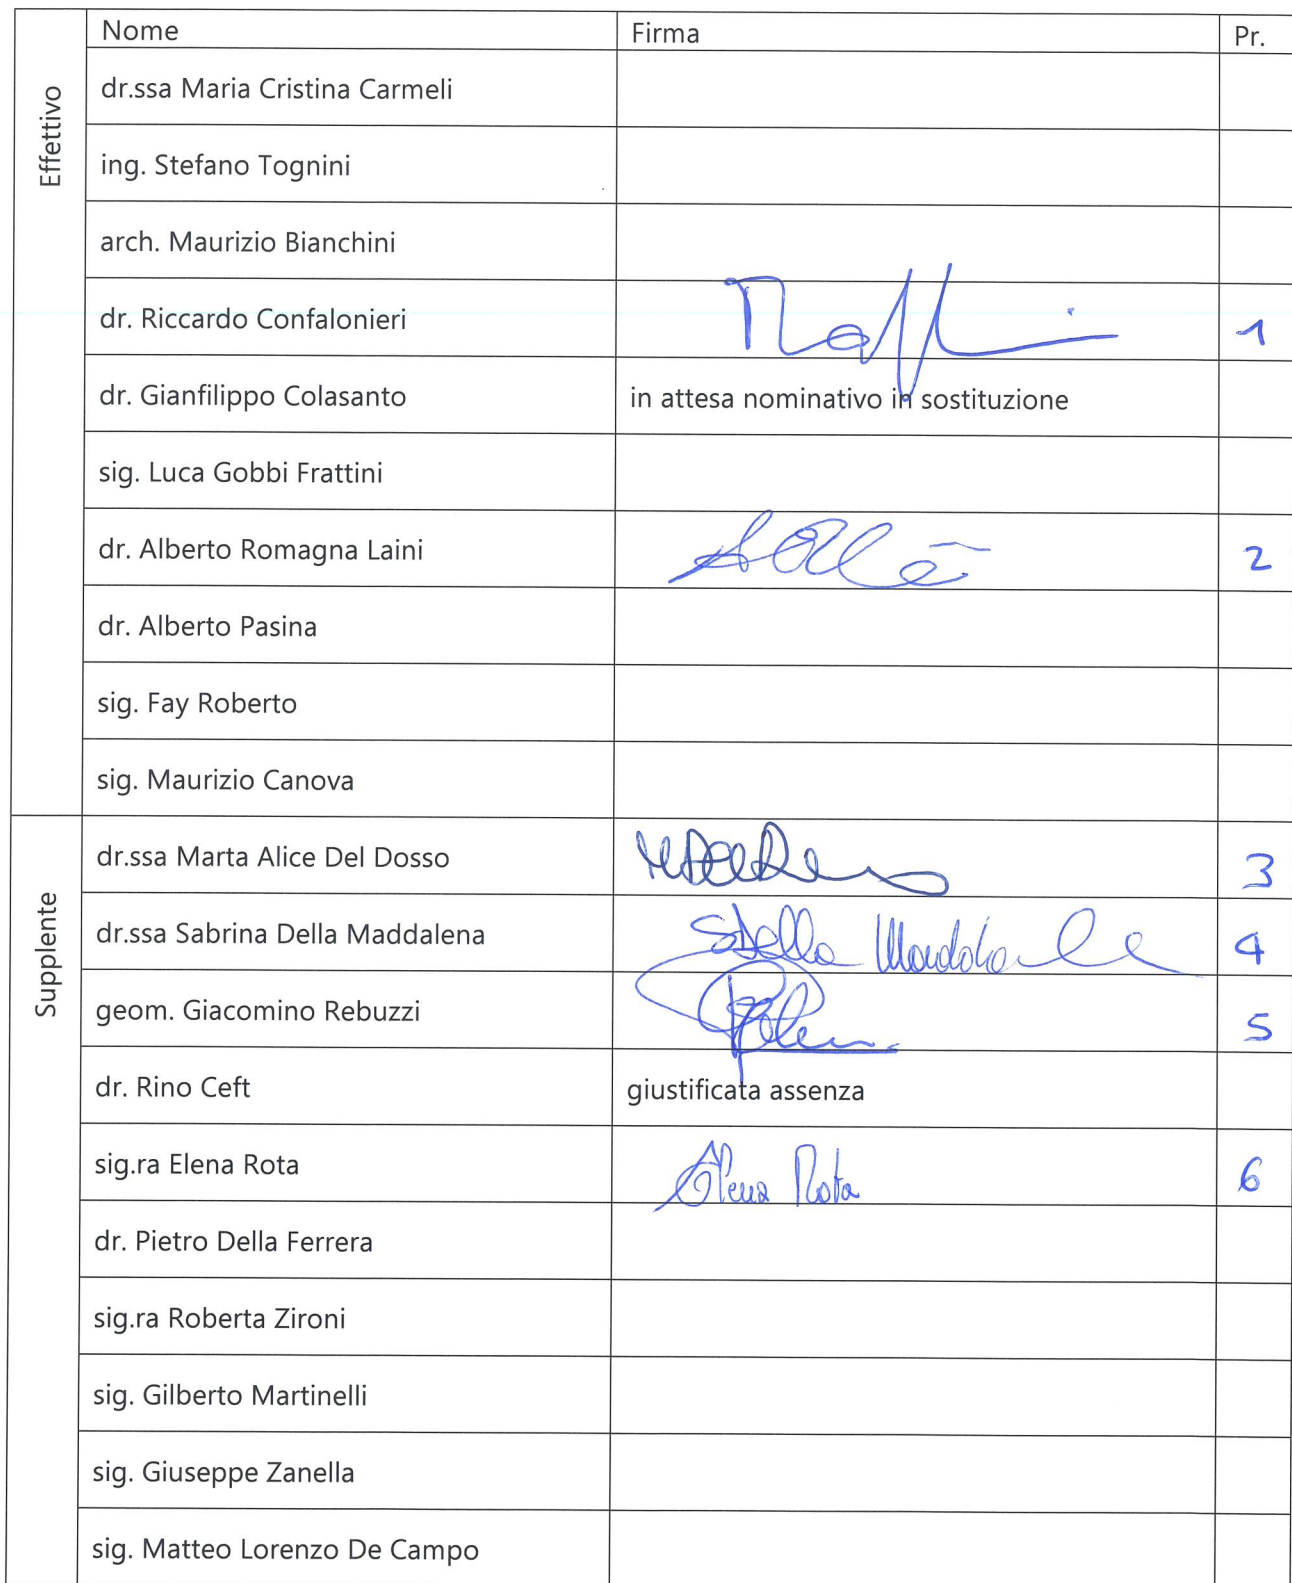 Nome Firma Pr.
Effettivo
dr.ssa Maria Cristina Carmeli
ing. Stefano Tognini
arch. Maurizio Bianchini
dr. Riccardo Confalonieri 1
dr. Gianfilippo Colasanto in attesa nominativo in sostituzione
sig. Luca Gobbi Frattini
dr. Alberto Romagna Laini 2
dr. Alberto Pasina
sig. Fay Roberto
sig. Maurizio Canova
Supplente
dr.ssa Marta Alice Del Dosso 3
dr.ssa Sabrina Della Maddalena SDella Maddalena 4
geom. Giacomino Rebuzzi 5
dr. Rino Ceft giustificata assenza
sig.ra Elena Rota Elena Rota 6
dr. Pietro Della Ferrera
sig.ra Roberta Zironi
sig. Gilberto Martinelli
sig. Giuseppe Zanella
sig. Matteo Lorenzo De Campo